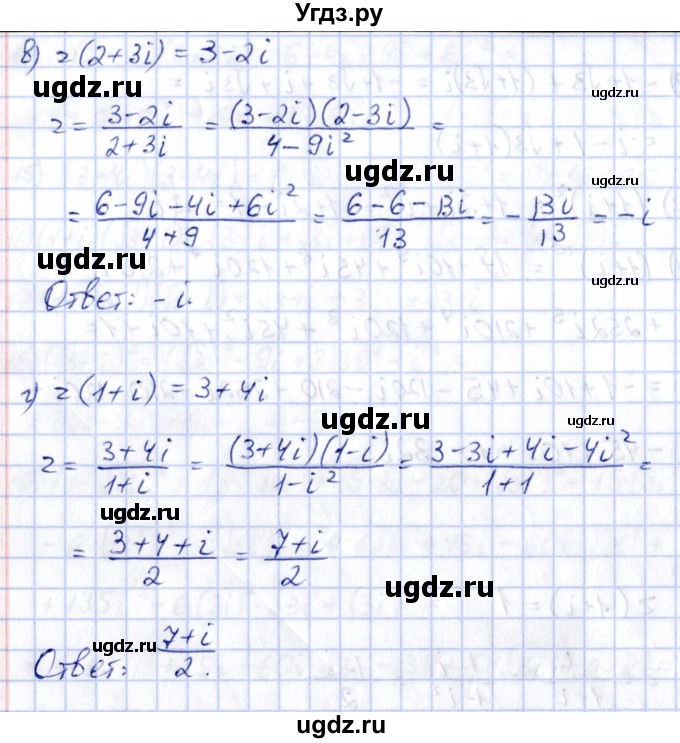 Угдз.ру
в) z(2+3i) = 3-2i
ugdz.ru ugdz.ru
z = \frac{3-2i}{2+3i} = \frac{(3-2i)(2-3i)}{4-9i^2} =
ugdz.ru
= \frac{6-9i-4i+6i^2}{4+9} = \frac{6-6-13i}{13} = -\frac{13i}{13} = -i
ugdz.ru ugdz.ru
Ответ: -i.
г) z(1+i) = 3+4i
ugdz.ru ugdz.ru
z = \frac{3+4i}{1+i} = \frac{(3+4i)(1-i)}{1-i^2} = \frac{3-3i+4i-4i^2}{1+1} =
ugdz.ru
= \frac{3+4+i}{2} = \frac{7+i}{2}
ugdz.ru
ugdz.ru
Ответ: \frac{7+i}{2}.
ugdz.ru
ugdz.ru